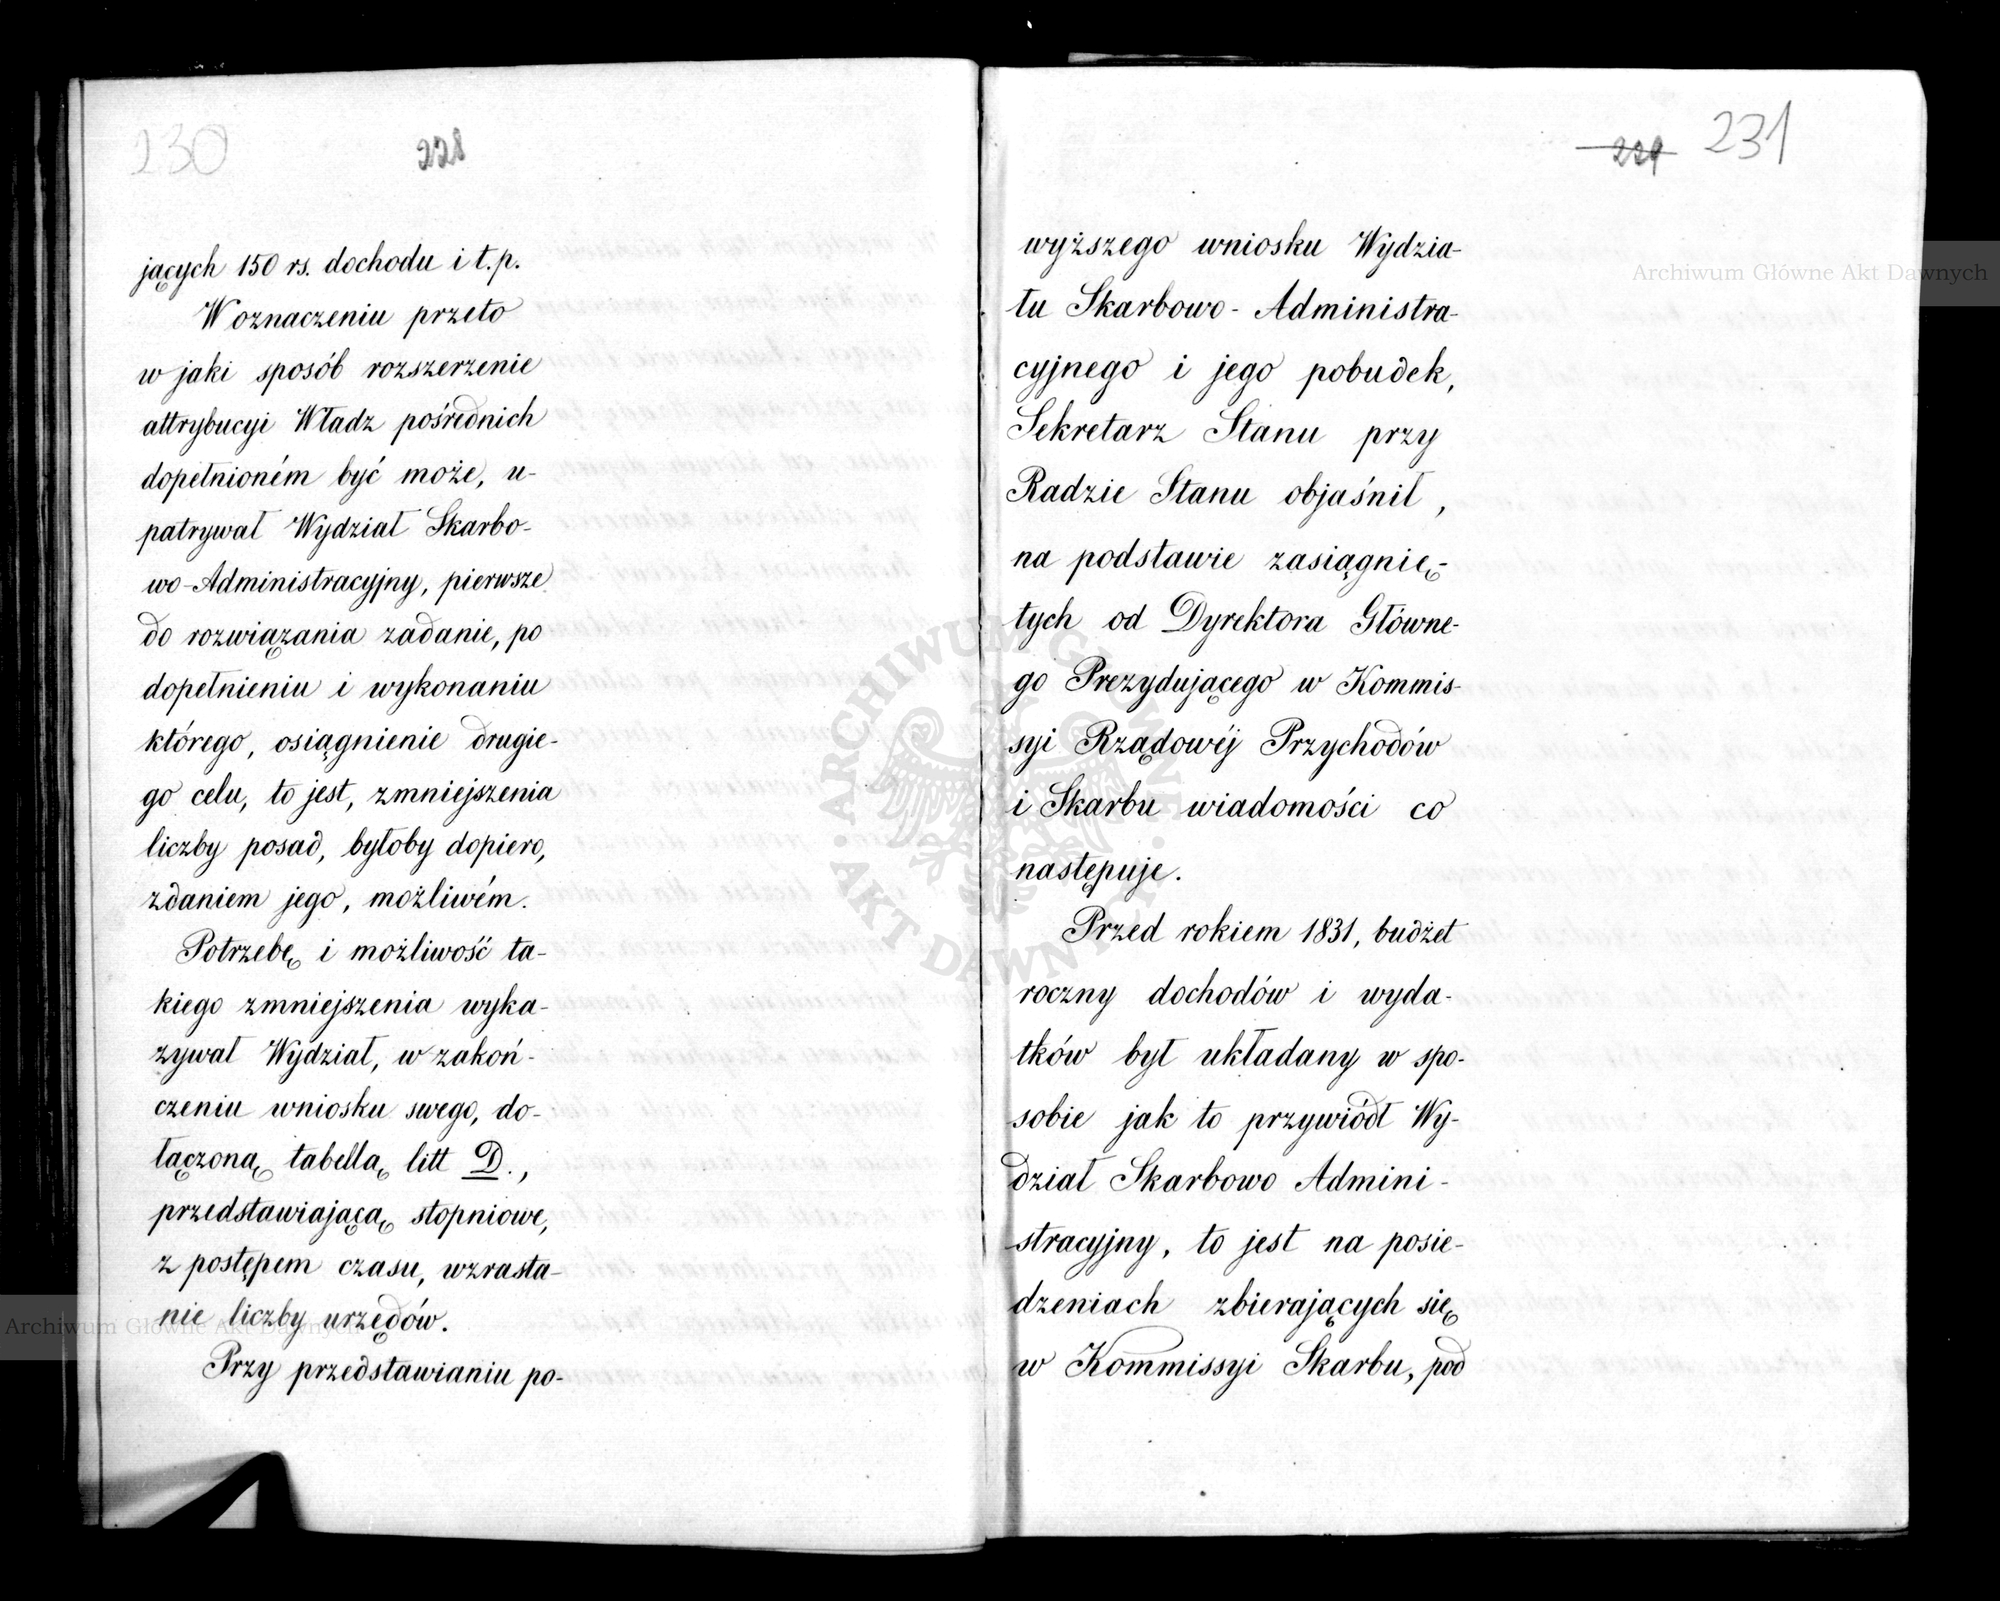 230
228
jących 150 rs. dochodu i t.p.
W oznaczeniu przeto
w jaki sposób rozszerzenie
attrybucyi Władz pośrednich
dopełnioném być może, u-
patrywał Wydział Skarbo-
wo-Administracyjny, pierwsze
do rozwiązania zadanie, po
dopełnieniu i wykonaniu
którego, osiągnienie drugie-
go celu, to jest, zmniejszenia
liczby posad, byłoby dopiero,
zdaniem jego, możliwém.
Potrzebę i możliwość ta-
kiego zmniejszenia wyka-
zywał Wydział, w zakoń-
czeniu wniosku swego, do-
łączoną tabellą litt D.,
przedstawiającą stopniowe,
z postępem czasu, wzrasta-
nie liczby urzędów.
Przy przedstawianiu po-
229 231
wyższego wniosku Wydzia-
łu Skarbowo-Administra-
cyjnego i jego pobudek,
Sekretarz Stanu przy
Radzie Stanu objaśnił,
na podstawie zasiągnię-
tych od Dyrektora Główne-
go Prezydującego w Kommis-
syi Rządowéj Przychodów
i Skarbu wiadomości co
następuje.
Przed rokiem 1831, budżet
roczny dochodów i wyda-
tków był układany w spo-
sobie jak to przywiódł Wy-
dział Skarbowo Admini-
stracyjny, to jest na posie-
dzeniach zbierających się
w Kommissyi Skarbu, pod
Archiwum Główne Akt Dawnych
Archiwum Główne Akt Dawnych
ARCHIWUM GŁÓWNE AKT DAWNYCH